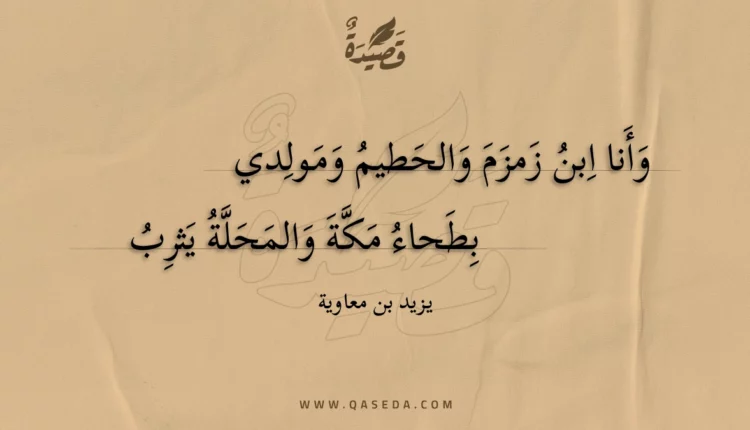 قَصِيدَةٌ
وَأَنا اِبنُ زَمزَمَ وَالحَطيمُ وَمَولِدي
بِطَحاءُ مَكَّةَ وَالمَحَلَّةُ يَثرِبُ
يزيد بن معاوية
WWW.QASEDA.COM